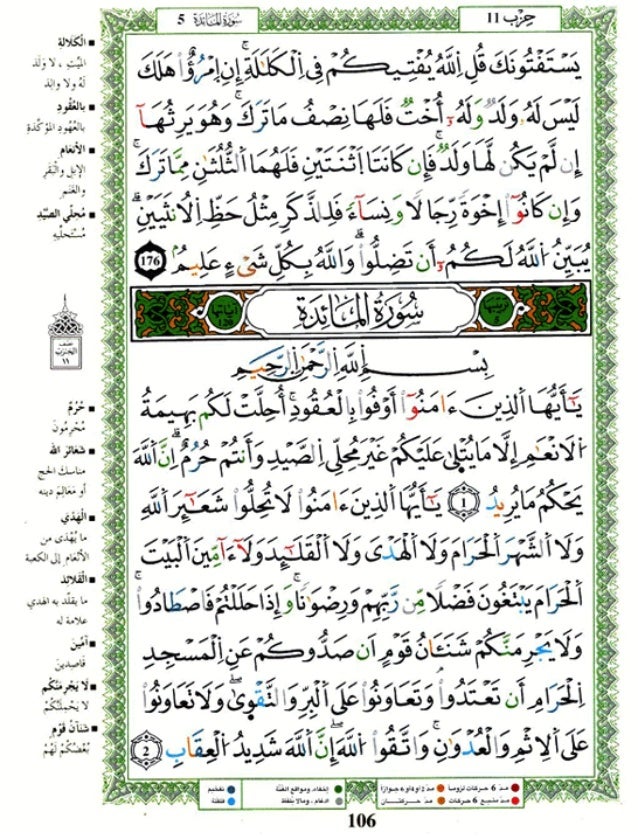 حِزْب 11
سُورَةُ المَائِدَة 5
يَسْتَفْتُونَكَ قُلِ اِللَّهُ يُفْتِيكُمْ فِي اِلْكَلَٰلَةِ إِنِ اِمْرُؤٌاْ هَلَكَ
لَيْسَ لَهُۥ وَلَدٌ وَلَهُۥٓ أُخْتٌ فَلَهَا نِصْفُ مَا تَرَكَ وَهُوَ يَرِثُهَآ
إِن لَّمْ يَكُن لَّهَا وَلَدٌ فَإِن كَانَتَا اَثْنَتَيْنِ فَلَهُمَا اَلثُّلُثَٰنِ مِمَّا تَرَكَ
وَإِن كَانُوٓاْ إِخْوَةً رِّجَالًا وَنِسَآءً فَلِلذَّكَرِ مِثْلُ حَظِّ اِلُانثَيَيْنِ
يُبَيِّنُ اُللَّهُ لَكُمُۥٓ أَن تَضِلُّواْ وَاللَّهُ بِكُلِّ شَيْءٍ عَلِيمٌ 176
سُورَةُ المَائِدَة
بِسْمِ اِللَّهِ اِلرَّحْمَٰنِ اِلرَّحِيمِ
يَٰٓأَيُّهَا اَلذِينَ ءَامَنُوٓاْ أَوْفُواْ بِالْعُقُودِ أُحِلَّتْ لَكُم بَهِيمَةُ
اُلَانْعَٰمِ إِلَّا مَا يُتْلَىٰ عَلَيْكُمْ غَيْرَ مُحِلِّي اِلصَّيْدِ وَأَنتُمْ حُرُمٌ اِنَّ اَللَّهَ
يَحْكُمُ مَا يُرِيدُ 1 يَٰٓأَيُّهَا اَلذِينَ ءَامَنُواْ لَا تُحِلُّواْ شَعَٰٓئِرَ اَللَّهِ
وَلَا اَلشَّهْرَ اَلْحَرَامَ وَلَا اَلْهَدْيَ وَلَا اَلْقَلَٰٓئِدَ وَلَآ ءَآمِّينَ اَلْبَيْتَ
اَلْحَرَامَ يَبْتَغُونَ فَضْلًا مِّن رَّبِّهِمْ وَرِضْوَٰنًا وَإِذَا حَلَلْتُمْ فَاصْطَادُواْ
وَلَا يَجْرِمَنَّكُمْ شَنَـَٔانُ قَوْمٍ اَن صَدُّوكُمْ عَنِ اِلْمَسْجِدِ
اِلْحَرَامِ أَن تَعْتَدُواْ وَتَعَاوَنُواْ عَلَى اَلْبِرِّ وَالتَّقْوَىٰ وَلَا تَعَاوَنُواْ
عَلَى اَلِاثْمِ وَالْعُدْوَٰنِ وَاتَّقُواْ اُللَّهَ إِنَّ اَللَّهَ شَدِيدُ اُلْعِقَابِ 2
الْكَلَالَةِ
الميّتِ، لا وَلَدَ
لَهُ ولا والِدَ
بالعُقُودِ
بالعُهُودِ المُؤَكَّدَةِ
الأنْعَامِ
الإبلِ والبَقَرِ
والغَنَمِ
مُحِلِّي الصَّيْدِ
مُسْتَحِلِّيهِ
نصف
الحزب
١١
حُرُمٌ
مُحْرِمُونَ
شَعَائِرَ الله
مناسك الحج
أو مَعَالِمَ دينه
الهَدْيَ
ما يُهْدَى من
الأنْعَامِ إلى الكعبة
القَلَائِدَ
ما يقلد به الهدي
علامة له
آمِّينَ
قَاصِدِينَ
لَا يَجْرِمَنَّكُمْ
لا يَحْمِلَنَّكُمْ
شَنَآنُ قَوْمٍ
بُغْضُكُمْ لَهُمْ
مدّ 6 حركات لزوماً
مدّ 2 أو 4 أو 6 جوازاً
إخفاء، ومواقع الغُنَّة
تفخيم
مدّ مشبع 6 حركات
مدّ حركتان
ادغام، وما لا يُلفظ
قلقلة
106